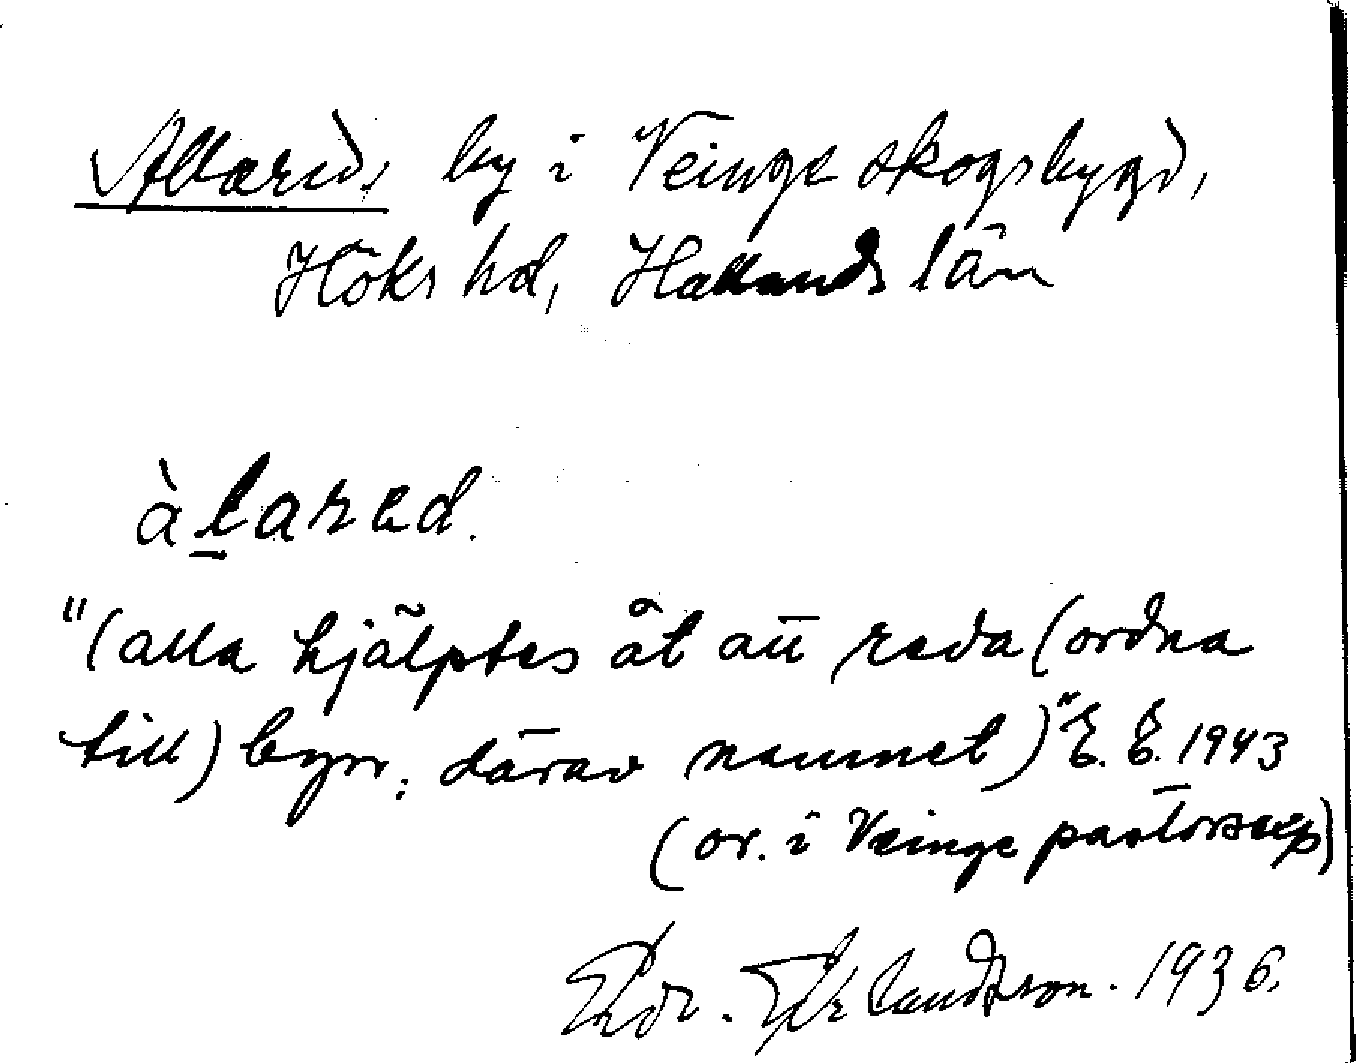 Allared, by i Veinge skogsbygd,
Höks hd, Hallands län
àlared.
"(alla hjälptes åt att reda (ordna
till) byn; därav namnet)" E. E. 1943
(or. i Veinge pastorsexp)
1936.